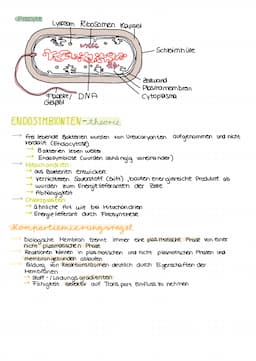 Lysosom Ribosomen Kapsel
Schleimhülle
Zellwand
Plasmamembran
Cytoplasma
DNA
ENDOSIMBIONTEN-theorie
Frei lebende Bakterien wurden von Ureucaryoten aufgenommen und nicht
verdaut (Endocytose)
→ Bakterien leben weiter
→ Endosymbiose (wurden abhängig voneinander)
Mitochondrien
→ aus Bakterien entwickelt
→ vernichteten Sauerstoff (Gift), bauten energiereiche Produkte ab
→ wurden zum Energielieferanten der Zelle
→ Abhängigkeit
Chloroplasten
→ ähnliche Art wie bei Mitochondrien
→ Energielieferant durch Fotosynthese
Kompartimentierungsregel
→ Biologische Membran trennt immer eine plasmatische Phase von einer
nicht plasmatischen Phase
→ Reaktionen können in plasmatischen und nicht plasmatischen Phasen und
membrangebunden ablaufen
→ Bildung von Reaktionsräumen deutlich durch Eigenschaften der
Membranen
→ Stoff-/Ladungsgradienten
→ Fähigkeit selektiv auf Transport Einfluss zu nehmen